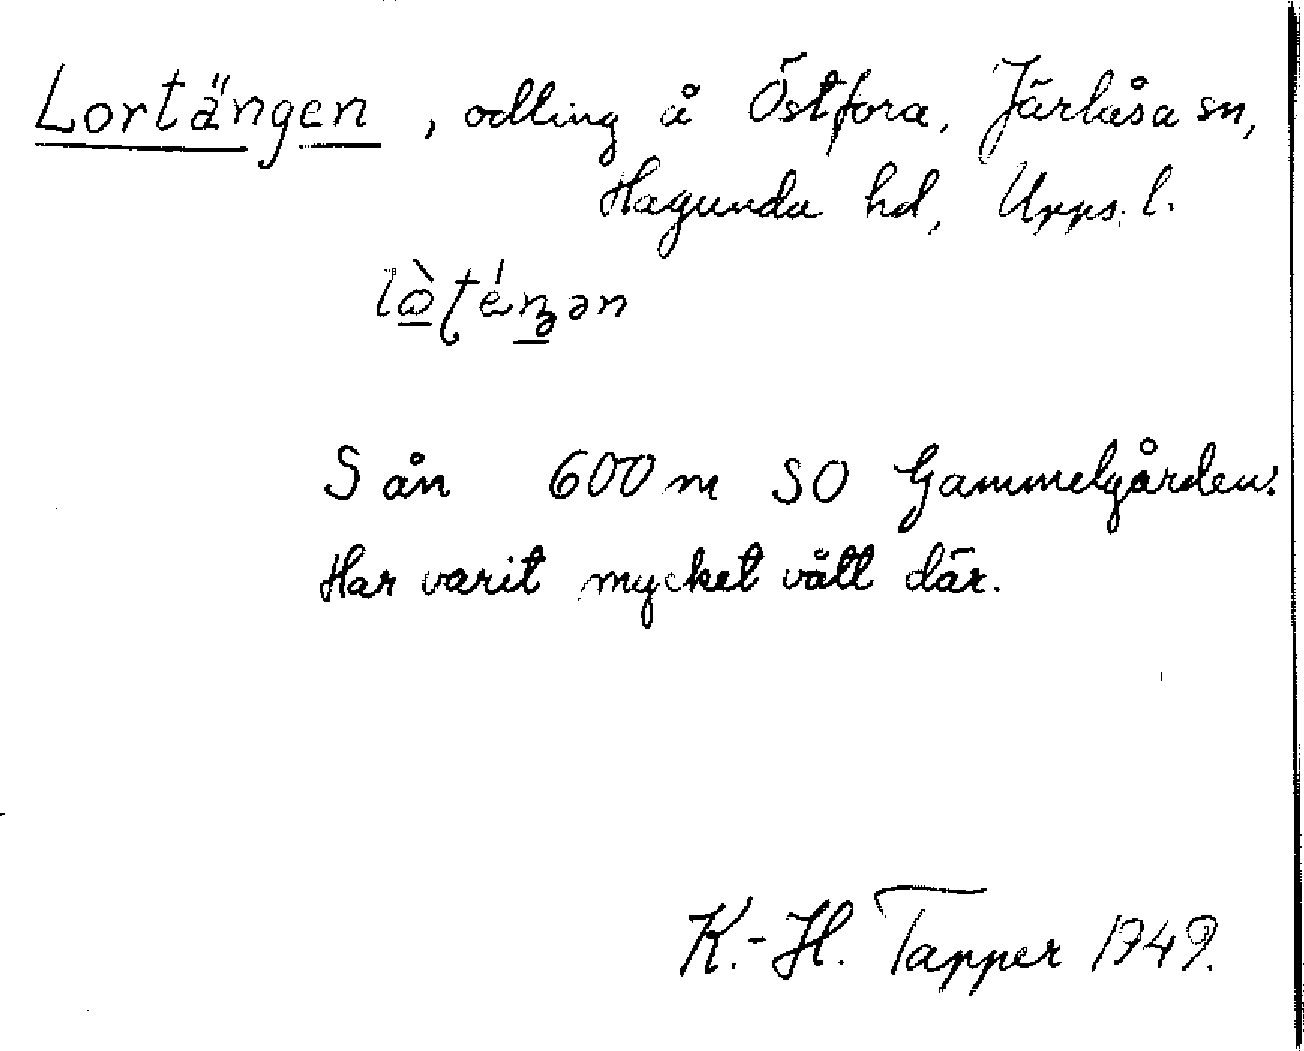 Lortängen, odling å Östfora, Järlåsa sn,
Hagunda hd, Upps. l.
S ån 600 m SO Gammelgården.
Har varit mycket vått där.
K.-H. Tapper 1949.